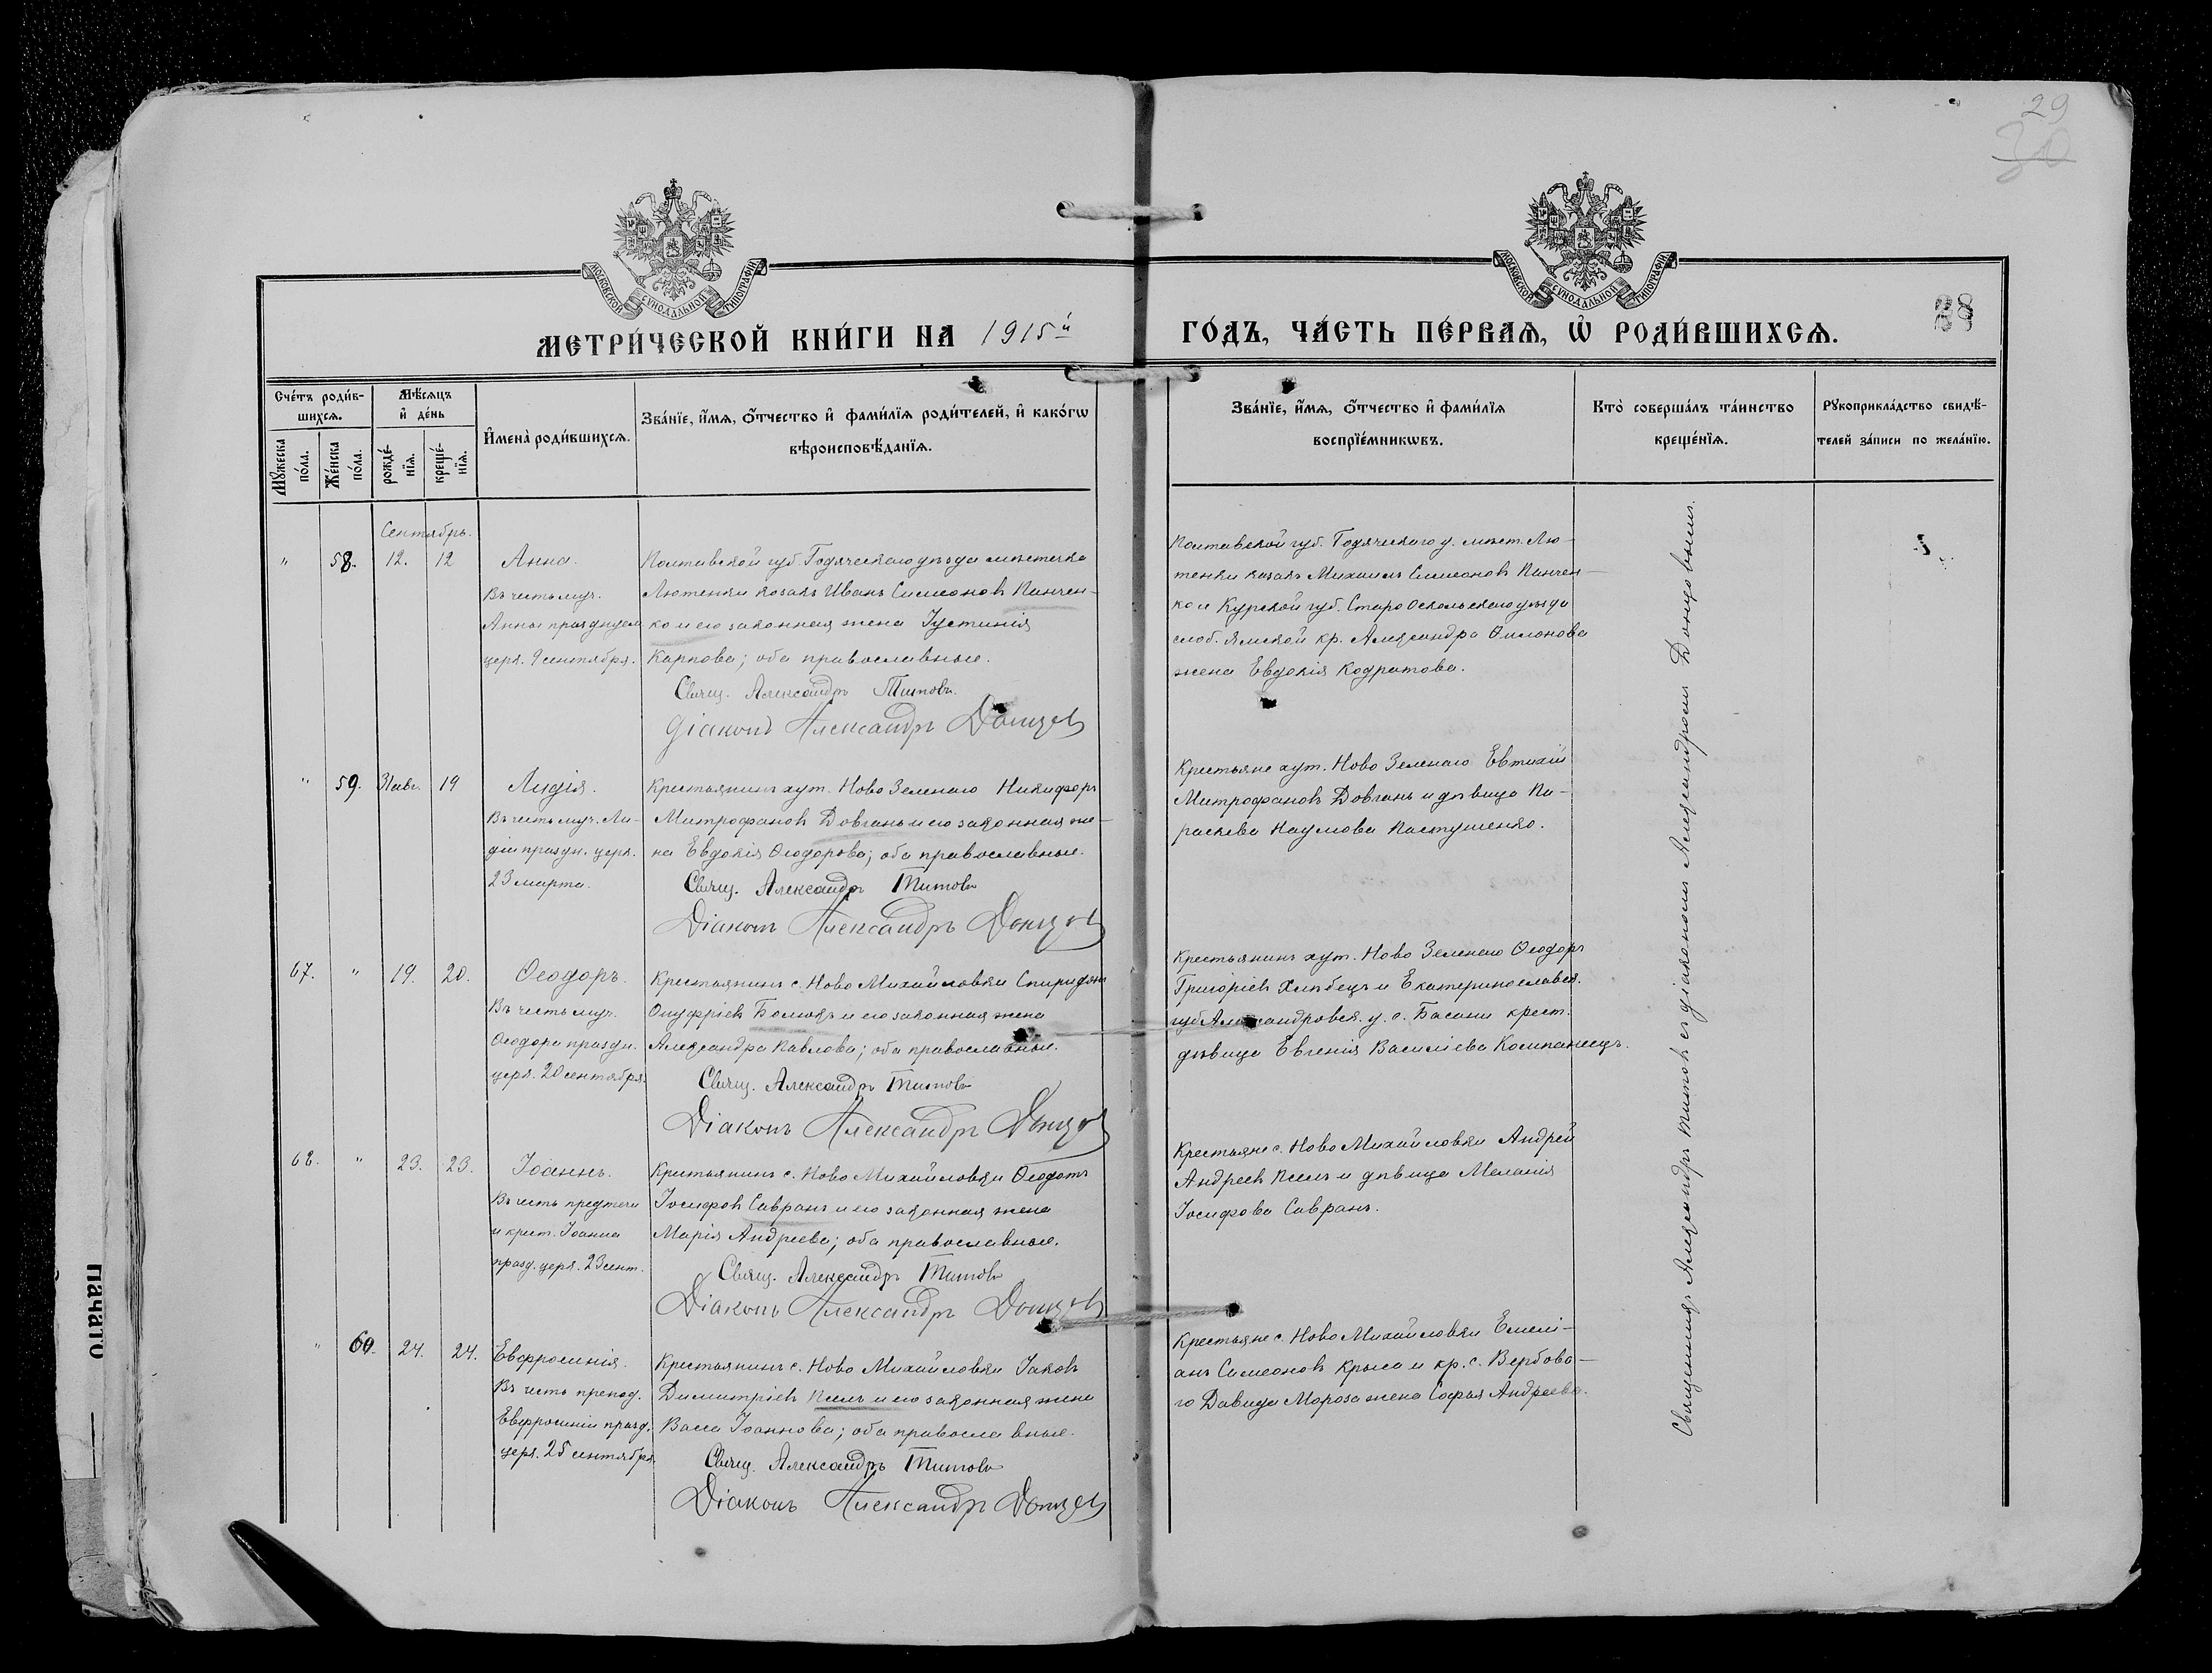 29
30
МОСКОВСКОЙ СѴНОДАЛЬНОЙ ТИПОГРАФІИ
МОСКОВСКОЙ СѴНОДАЛЬНОЙ ТИПОГРАФІИ
МЕТРИ́ЧЕСКОЙ КНИ́ГИ НА 1915й
ГО́ДЪ, ЧА́СТЬ ПЕ́РВАѦ, Ѡ҆ РОДИ́ВШИХСѦ.
Сче́тъ роди́в-
шихсѧ.
Мѣ́сѧцъ
и҆ де́нь
Мꙋ́жеска
по́ла.
Же́нска
по́ла.
рожде́-
нїѧ.
креще́-
нїѧ.
И҆мена̀ роди́вшихсѧ.
Зва́нїе, и҆́мѧ, ѻ҆́тчество и҆ фами́лїѧ роди́телей, и҆ како́гѡ
вѣроисповѣ́данїѧ.
Зва́нїе, и҆́мѧ, ѻ҆́тчество и҆ фами́лїѧ
воспрїе́мникѡвъ.
Кто̀ соверша́лъ та́инство
креще́нїѧ.
Рꙋкоприкла́дство свидѣ́-
телей за́писи по жела́нїю.
Сентябрь.
" 58. 12. 12 Анна.
Въ честь муч.
Анны празднуем
церк. 9 сентября.
Полтавской губ. Годяческаго уѣзда мѣстечка
Лютенки козакъ Иванъ Симеоновъ Панчен-
ко и его законная жена Іустинія
Карпова; оба православные.
Свящ. Александръ Титовъ.
Діаконъ Александръ Донцовъ
Полтавской губ. Годяческаго у. мѣст. Лю-
тенки козакъ Михаилъ Симеоновъ Панчен-
ко и Курской губ. Старо Оскольскаго уѣзда
слоб. Ямской кр. Александра Филонова
жена Евдокія Кодратова.
" 59. 31 авг. 19 Лидія.
Въ честь муч. Ли-
діи праздн. церк.
23 марта.
Крестьянинъ хут. Ново Зеленаго Никифоръ
Митрофановъ Довгань и его законная же-
на Евдокія Ѳеодорова; оба православные.
Свящ. Александръ Титовъ
Діаконъ Александръ Донцовъ
Крестьяне хут. Ново Зеленаго Евтихій
Митрофановъ Довгань и дѣвица Па-
раскева Наумова Пастушенко.
67. " 19. 20. Ѳеодоръ.
Въ честь муч.
Ѳеодора праздн.
церк. 20 сентября.
Крестьянинъ с. Ново Михайловки Спиридонъ
Онуфріевъ и его законная жена
Александра Павлова; оба православные.
Свящ. Александръ Титовъ
Діаконъ Александръ Донцовъ
Крестьянинъ хут. Ново Зеленаго Ѳеодоръ
Григоріевъ Хлѣбецъ и Екатеринославск.
губ. Александровск. у. с. Басани крест.
дѣвица Евгенія Василіева Компанеецъ.
68. " 23. 23. Іоаннъ.
Въ честь предтечи
и крест. Іоанна
празд. церк. 23 сент.
Крестьянинъ с. Ново Михайловки Ѳеодотъ
Іосифовъ Савранъ и его законная жена
Марія Андреева; оба православные.
Свящ. Александръ Титовъ
Діаконъ Александръ Донцовъ
Крестьяне с. Ново Михайловки Андрей
Андреевъ Псель и дѣвица Меланія
Іосифова Савранъ.
" 60. 24. 24. Евфросинія.
Въ честь препод.
Евфросиніи празд.
церк. 25 сентября.
Крестьянинъ с. Ново Михайловки Іаковъ
Димитріевъ Псель и его законная жена
Васса Іоаннова; оба православные.
Свящ. Александръ Титовъ
Діаконъ Александръ Донцовъ
Крестьяне с. Ново Михайловки Емелі-
анъ Симеоновъ Крыса и кр. с. Вербова-
го Давида Мороза жена Софья Андреева.
Священникъ Александръ Титовъ съ діакономъ Александромъ Донцовымъ.
пачато